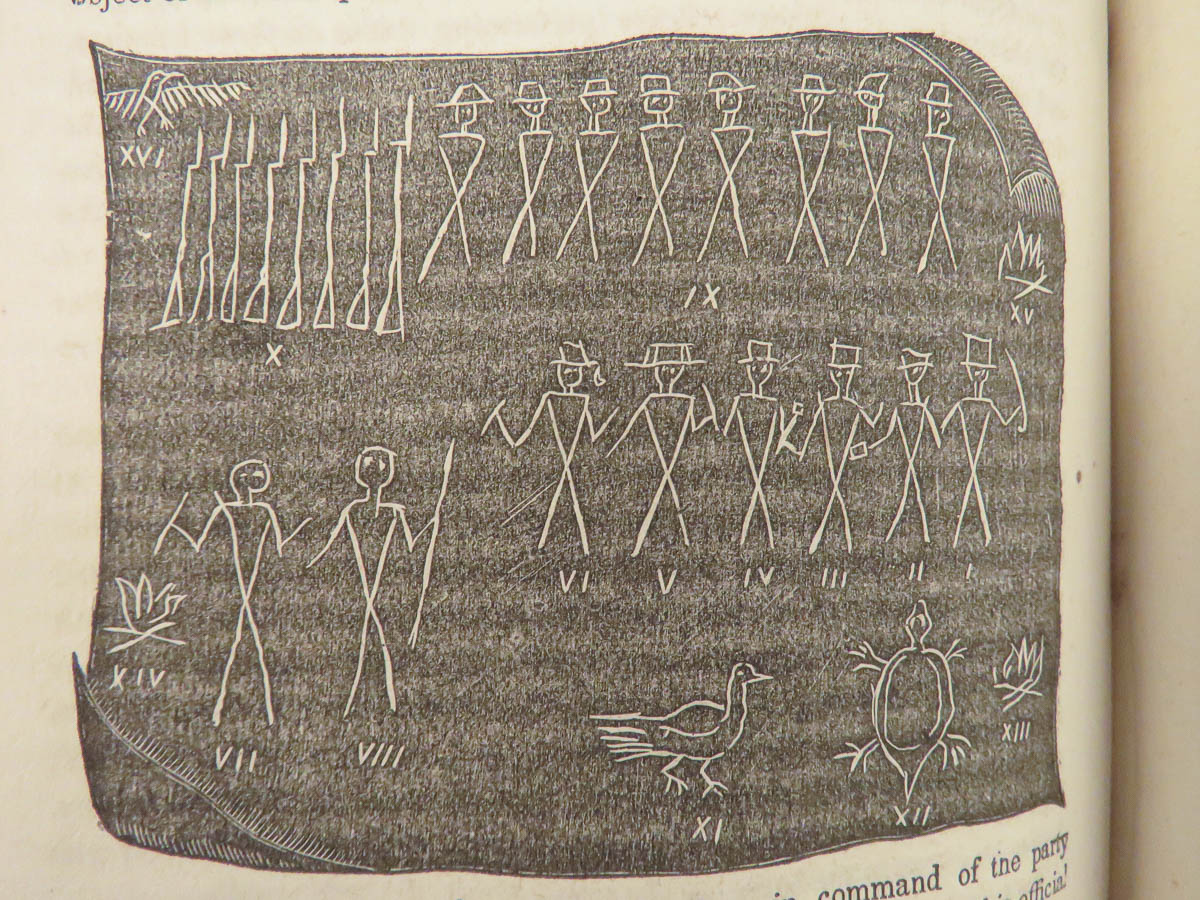 XVI
IX
XV
X
VI V IV III II I
XIV
XIII
VII VIII
XI
XII
command of the party
official